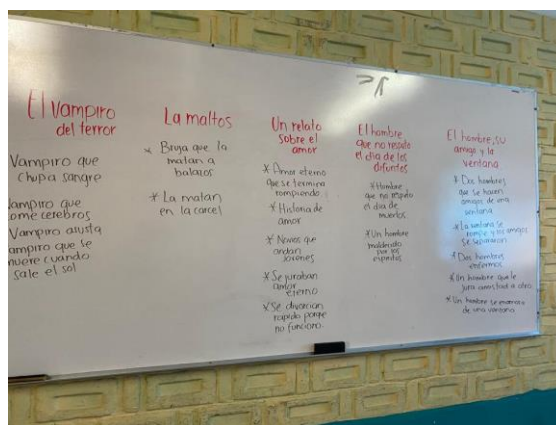 El Vampiro
del terror
Vampiro que
chupa sangre
Vampiro que
come cerebros
Vampiro asusta
ampiro que se
muere cuando
sale el sol
La maltos
* Bruja que la
matan a
balazos
* La matan
en la carcel
Un relato
sobre el
amor
* Amor eterno
que se termina
rompiendo
* Historia de
amor
* Novios que
andan
jóvenes
* Se juraban
amor
eterno
* Se divorcian
rapido porque
no funciono
El hombre
que no respeto
el dia de los
difuntos
* Hombre
que no respeto
el dia de
muertos
* Un hombre
maldecido
por los
espiritus
El hombre, su
amigo y la
ventana
* Dos hombres
que se hacen
amigos de una
ventana
* La ventana se
rompe y los amigos
se separaron
* Dos hombres
enfermos
* Un hombre que le
jura amistad a otro
* Un hombre se enamora
de una ventana